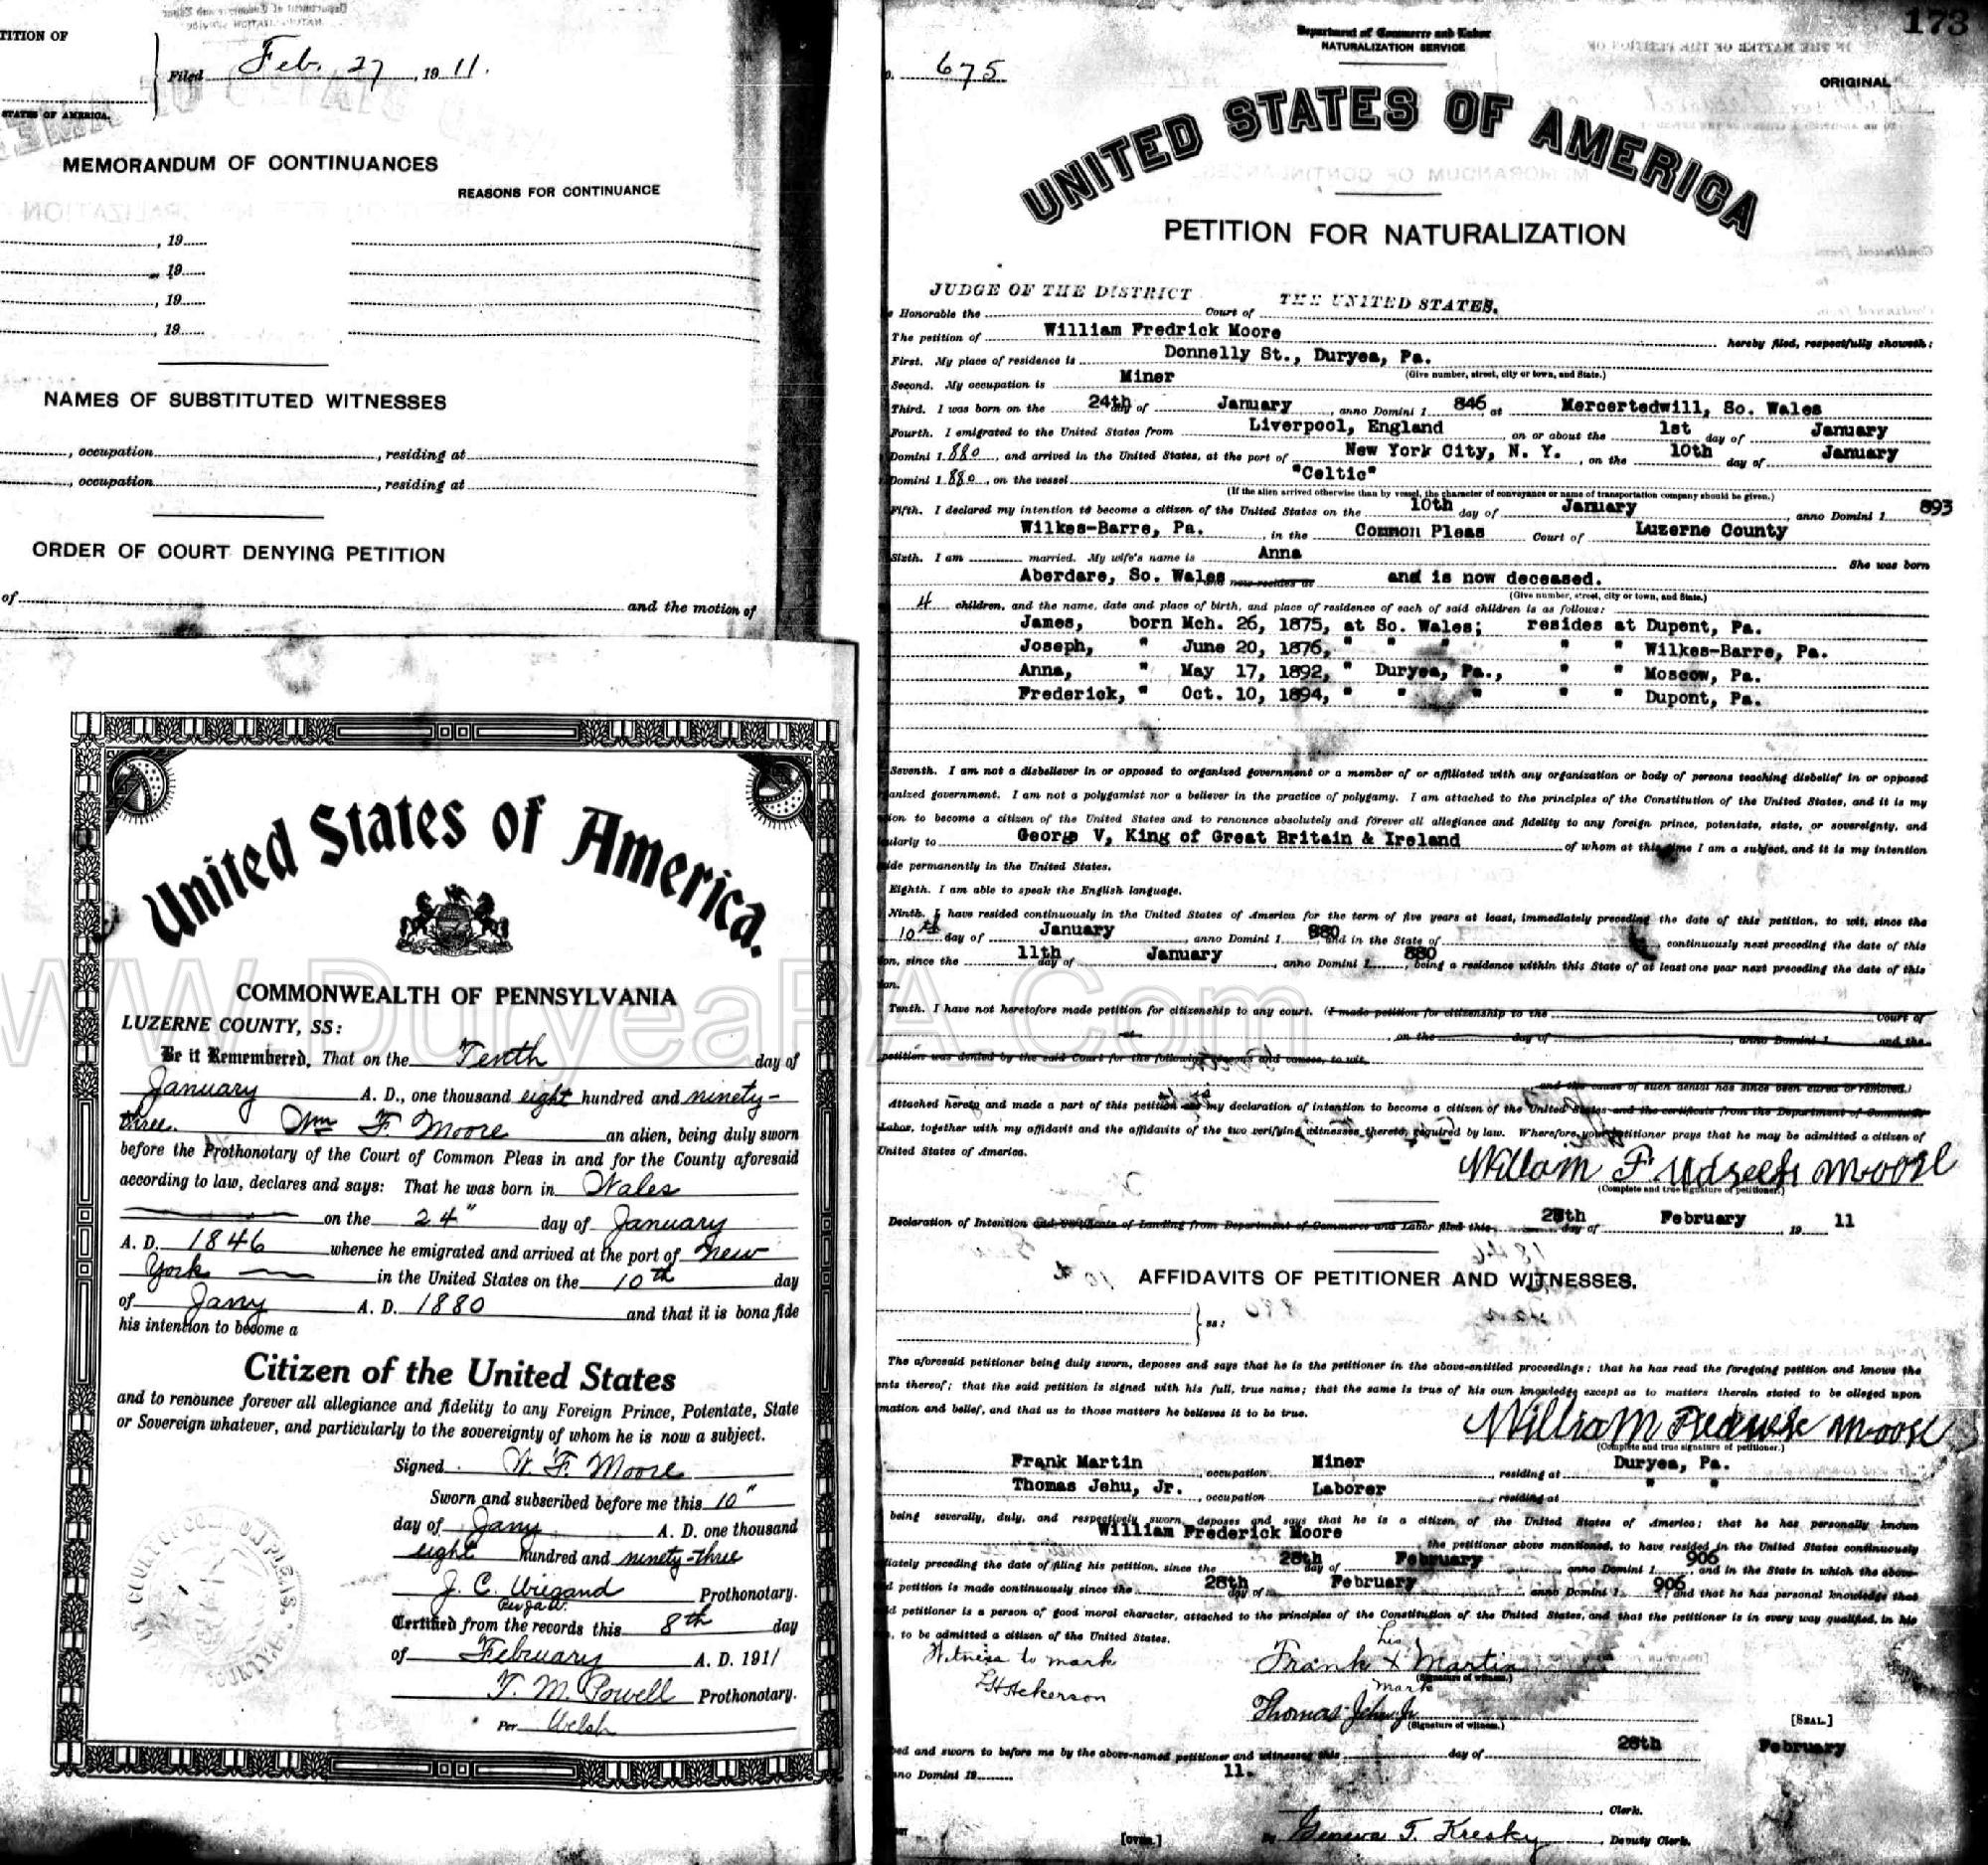 TITION OF
Filed Feb. 27, 1911.
STATES OF AMERICA.
MEMORANDUM OF CONTINUANCES
REASONS FOR CONTINUANCE
, 19
, 19
, 19
, 19
NAMES OF SUBSTITUTED WITNESSES
, occupation, residing at
, occupation, residing at
ORDER OF COURT DENYING PETITION
of and the motion of
United States of America.
COMMONWEALTH OF PENNSYLVANIA
LUZERNE COUNTY, SS:
Be it Remembered, That on the Tenth day of
January A. D., one thousand eight hundred and ninety-
three. Wm F. Moore an alien, being duly sworn
before the Prothonotary of the Court of Common Pleas in and for the County aforesaid
according to law, declares and says: That he was born in Wales
on the 24" day of January
A. D. 1846 whence he emigrated and arrived at the port of New
York in the United States on the 10th day
of Jany A. D. 1880 and that it is bona fide
his intention to become a
Citizen of the United States
and to renounce forever all allegiance and fidelity to any Foreign Prince, Potentate, State
or Sovereign whatever, and particularly to the sovereignty of whom he is now a subject.
Signed W. F. Moore
Sworn and subscribed before me this 10"
day of Jany A. D. one thousand
eight hundred and ninety-three
J. C. Wiegand Prothonotary.
Certified from the records this 8th day
of February A. D. 1911
T. M. Powell Prothonotary.
Per Welsh
WWW.DuryeaPA.Com
173
Department of Commerce and Labor
NATURALIZATION SERVICE
o. 675
ORIGINAL
UNITED STATES OF AMERICA
PETITION FOR NATURALIZATION
JUDGE OF THE DISTRICT THE UNITED STATES.
e Honorable the Court of
The petition of William Fredrick Moore hereby filed, respectfully showeth:
First. My place of residence is Donnelly St., Duryea, Pa.
(Give number, street, city or town, and State.)
Second. My occupation is Miner
Third. I was born on the 24th day of January, anno Domini 1 846 at Mercertedwill, So. Wales
Fourth. I emigrated to the United States from Liverpool, England, on or about the 1st day of January
Domini 1 880, and arrived in the United States, at the port of New York City, N. Y., on the 10th day of January
Domini 1 880, on the vessel "Celtic"
(If the alien arrived otherwise than by vessel, the character of conveyance or name of transportation company should be given.)
Fifth. I declared my intention to become a citizen of the United States on the 10th day of January, anno Domini 1 893
Wilkes-Barre, Pa., in the Common Pleas Court of Luzerne County
Sixth. I am married. My wife's name is Anna She was born
Aberdare, So. Wales now resides at and is now deceased.
(Give number, street, city or town, and State.)
4 children, and the name, date and place of birth, and place of residence of each of said children is as follows:
James, born Mch. 26, 1875, at So. Wales; resides at Dupont, Pa.
Joseph, " June 20, 1876, " " " " " Wilkes-Barre, Pa.
Anna, " May 17, 1892, " Duryea, Pa., " " Moscow, Pa.
Frederick, " Oct. 10, 1894, " " " " " Dupont, Pa.
Seventh. I am not a disbeliever in or opposed to organized government or a member of or affiliated with any organization or body of persons teaching disbelief in or opposed
anized government. I am not a polygamist nor a believer in the practice of polygamy. I am attached to the principles of the Constitution of the United States, and it is my
tion to become a citizen of the United States and to renounce absolutely and forever all allegiance and fidelity to any foreign prince, potentate, state, or sovereignty, and
ularly to George V, King of Great Britain & Ireland of whom at this time I am a subject, and it is my intention
ide permanently in the United States.
Eighth. I am able to speak the English language.
Ninth. I have resided continuously in the United States of America for the term of five years at least, immediately preceding the date of this petition, to wit, since the
10th day of January, anno Domini 1 880, and in the State of continuously next preceding the date of this
on, since the 11th day of January, anno Domini 1 880, being a residence within this State of at least one year next preceding the date of this
on.
Tenth. I have not heretofore made petition for citizenship to any court. (I made petition for citizenship to the Court of
at, on the day of, anno Domini 1 and the
petition was denied by the said Court for the following reasons and causes, to wit,
and the cause of such denial has since been cured or removed.)
Attached hereto and made a part of this petition my declaration of intention to become a citizen of the United States and the certificate from the Department of Commerce
Labor, together with my affidavit and the affidavits of the two verifying witnesses thereto, required by law. Wherefore your petitioner prays that he may be admitted a citizen of
United States of America.
William Moore
(Complete and true signature of petitioner.)
Declaration of Intention and Certificate of Landing from Department of Commerce and Labor filed this 28th day of February 19 11
AFFIDAVITS OF PETITIONER AND WITNESSES.
ss:
The aforesaid petitioner being duly sworn, deposes and says that he is the petitioner in the above-entitled proceedings; that he has read the foregoing petition and knows the
ents thereof; that the said petition is signed with his full, true name; that the same is true of his own knowledge except as to matters therein stated to be alleged upon
mation and belief, and that as to those matters he believes it to be true.
William Moore
(Complete and true signature of petitioner.)
Frank Martin, occupation Miner, residing at Duryea, Pa.
Thomas Jehu, Jr., occupation Laborer, residing at " "
being severally, duly, and respectively sworn, deposes and says that he is a citizen of the United States of America; that he has personally known
William Frederick Moore the petitioner above mentioned, to have resided in the United States continuously
diately preceding the date of filing his petition, since the 28th day of February, anno Domini 1 906, and in the State in which the above-
d petition is made continuously since the 28th day of February anno Domini 1 906, and that he has personal knowledge that
id petitioner is a person of good moral character, attached to the principles of the Constitution of the United States, and that the petitioner is in every way qualified, in his
, to be admitted a citizen of the United States.
Witness to mark
his
Frank x Martin
mark
(Signature of witness.)
Thomas Jehu Jr
(Signature of witness.)
[SEAL.]
bed and sworn to before me by the above-named petitioner and witnesses this day of 28th February
nno Domini 19 11.
, Clerk.
[OVER.]
By Geneva T. Kresky, Deputy Clerk.